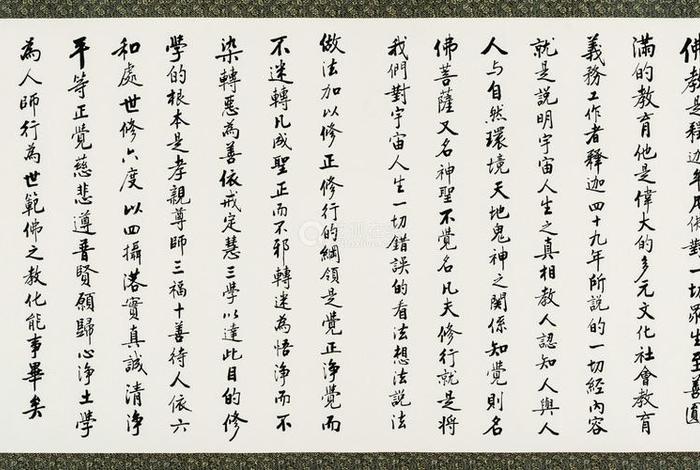 佛教是釋迦牟尼佛對一切眾生至善圓
滿的教育他是偉大的多元文化社會教育
義務工作者釋迦四十九年所說的一切經內容
就是說明宇宙人生之真相教人認知人與人
人与自然環境天地鬼神之関係知覺則名
佛菩薩又名神聖不覺名凡夫修行就是將
我們對宇宙人生一切錯誤的看法想法說法
做法加以修正修行的綱領是覺正淨覺而
不迷轉凡成聖正而不邪轉迷為悟淨而不
染轉惡為善依戒定慧三學以達此目的修
學的根本是孝親尊師三福十善待人依六
和處世修六度以四攝落實真誠清淨
平等正覺慈悲遵普賢願歸心淨土學
為人師行為世範佛之教化能事畢矣